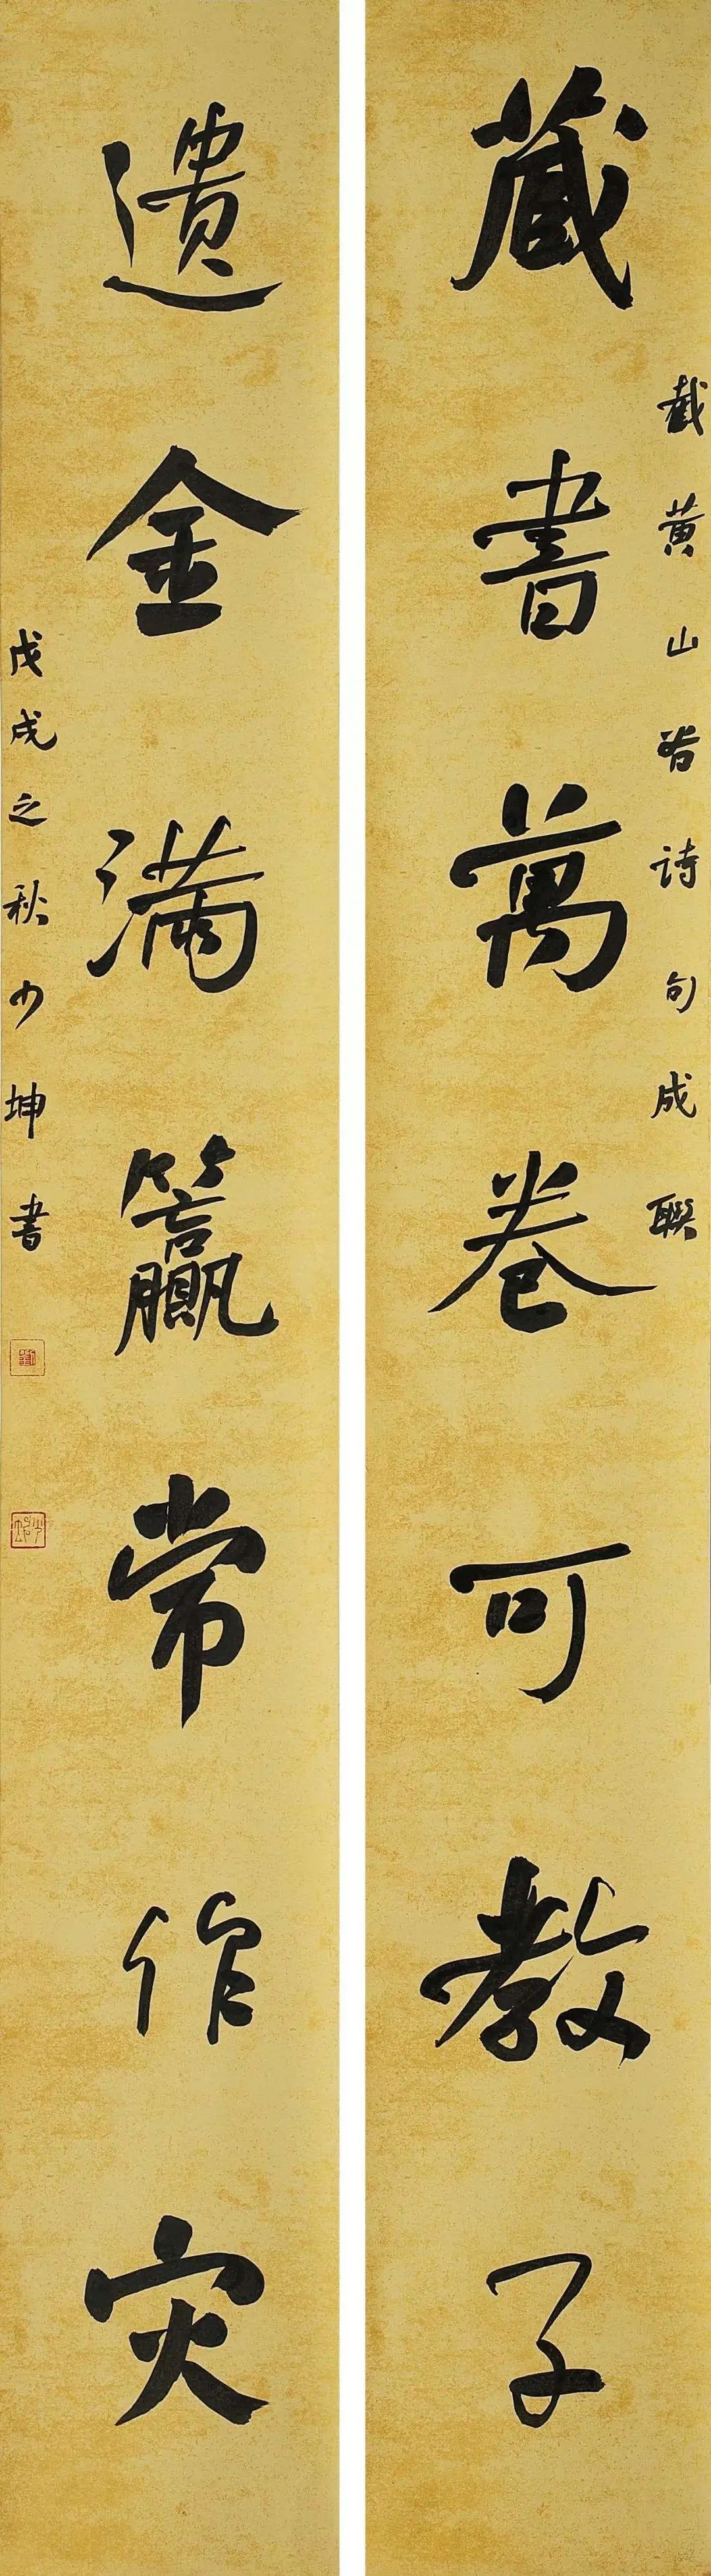 藏書萬卷可教子
截黄山谷詩句成聯
遺金滿籯常作灾
戊戌之秋少坤書